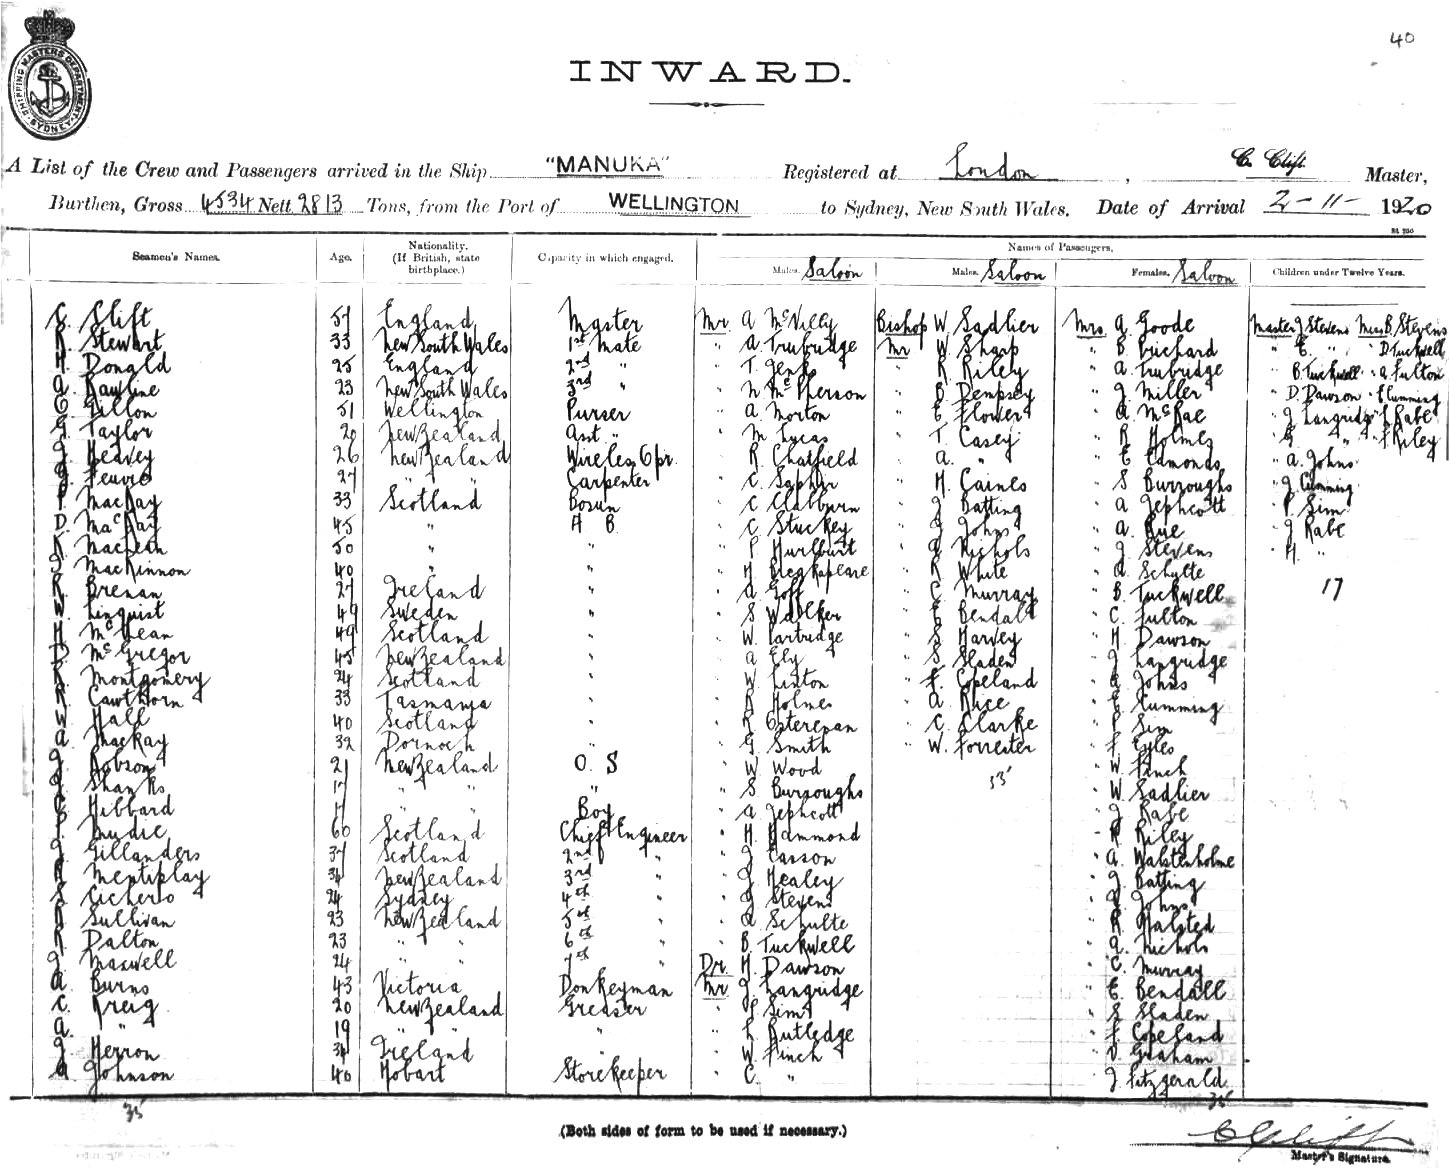 40
SHIPPING MASTERS DEPARTMENT
SYDNEY
INWARD.
A List of the Crew and Passengers arrived in the Ship "MANUKA" Registered at London, C. Clift Master,
Burthen, Gross 4534 Nett 2813 Tons, from the Port of WELLINGTON to Sydney, New South Wales, Date of Arrival 2-11-1920
Seamen's Names. Age. Nationality. (If British, state birthplace.) Capacity in which engaged. Names of Passengers.
Males. Saloon Males. Saloon Females. Saloon Children under Twelve Years.
C. Clift 51 England Master Mr. A McNilly Bishop W. Sadlier Mrs. A. Goode Master J Stevens Miss B. Stevens
R. Stewart 33 New South Wales 1st Mate " A. Trubridge Mr W. Sharp " B Prichard " E. " " D Tuckwell
H Donald 25 England 2nd " " T. Jenks " R Riley " A. Trubridge " B Tuckwell " A Fulton
A. Rawline 23 New South Wales 3rd " " N McPherson " B Dempsey " J. Miller " D. Dawson " Cumming
C. Gillon 51 Wellington Purser " A. Morton " E Flower " A McRae " J Langridge " Rabe
G. Taylor 20 New Zealand Asst " " M Lucas " T. Casey " R Holmes " G " " Riley
J. Heavey 26 New Zealand Wireless Opr. " R. Chatfield " A. " " E Edmonds " A. Johns
27 " " Carpenter " C. Saphir " H. Caines " S Burroughs " J Cumming
MacKay 33 Scotland Bosun " C Claburn " J Batting " A Jephcott " P Sim
D. MacKay 45 " A B. " C Stuckey " J Johns " A. Rue " J Rabe
50 " " " Hurlburt " A Nichols " J Stevens " H "
MacKinnon 40 " " " H Breakspeare " R White " A. Schulte
R Brenan 27 Ireland " " A Goff " C Murray " B. Tuckwell 17
W. Linquist 49 Sweden " " S Walker " E Bendall " C. Fulton
H McLean 49 Scotland " " W. Partridge " S Harvey " H Dawson
McGregor 45 New Zealand " " A Ely " S Sladen " J Langridge
Montgomery 24 Scotland " " W Linton " F. Copeland " A Johns
Cawthorn 33 Tasmania " " R Holmes " A Rice " E Cumming
W. Hall 40 Scotland " " R " C. Clarke " P Sim
A. MacKay 32 Dornoch " " G Smith " W. Forrester " F Eyles
J Robson 21 New Zealand O. S " W Wood " W Finch
J Shanks 17 " " " " S Burroughs 55 " W. Sadlier
Hibbard 17 " " Boy " A Jephcott " J Rabe
Mudie 60 Scotland Chief Engineer " H Hammond " R Riley
J Gillanders 37 Scotland 2nd " " J Casson " A. Walstenholme
Mentiplay 34 New Zealand 3rd " " J Healey " J Batting
S Cichero 24 Sydney 4th " " J Stevens " A Johns
R Sullivan 23 New Zealand 5th " " A Schulte " R Halsted
R Dalton 23 " " 6th " " B. Tuckwell " A. Nichols
J. Maxwell 24 " " 7th " Dr. H Dawson " C. Murray
A. Burns 43 Victoria Donkeyman Mr J Langridge " E Bendall
C. Kreig 20 New Zealand Greaser " P Sim " S Sladen
A. " 19 " " " " L Rutledge " F Copeland
J. Herron 34 Ireland " " W Finch " V. Graham
A Johnson 40 Hobart Storekeeper " C. " J Fitzgerald
35 35
(Both sides of form to be used if necessary.)
C Clift
Master's Signature.